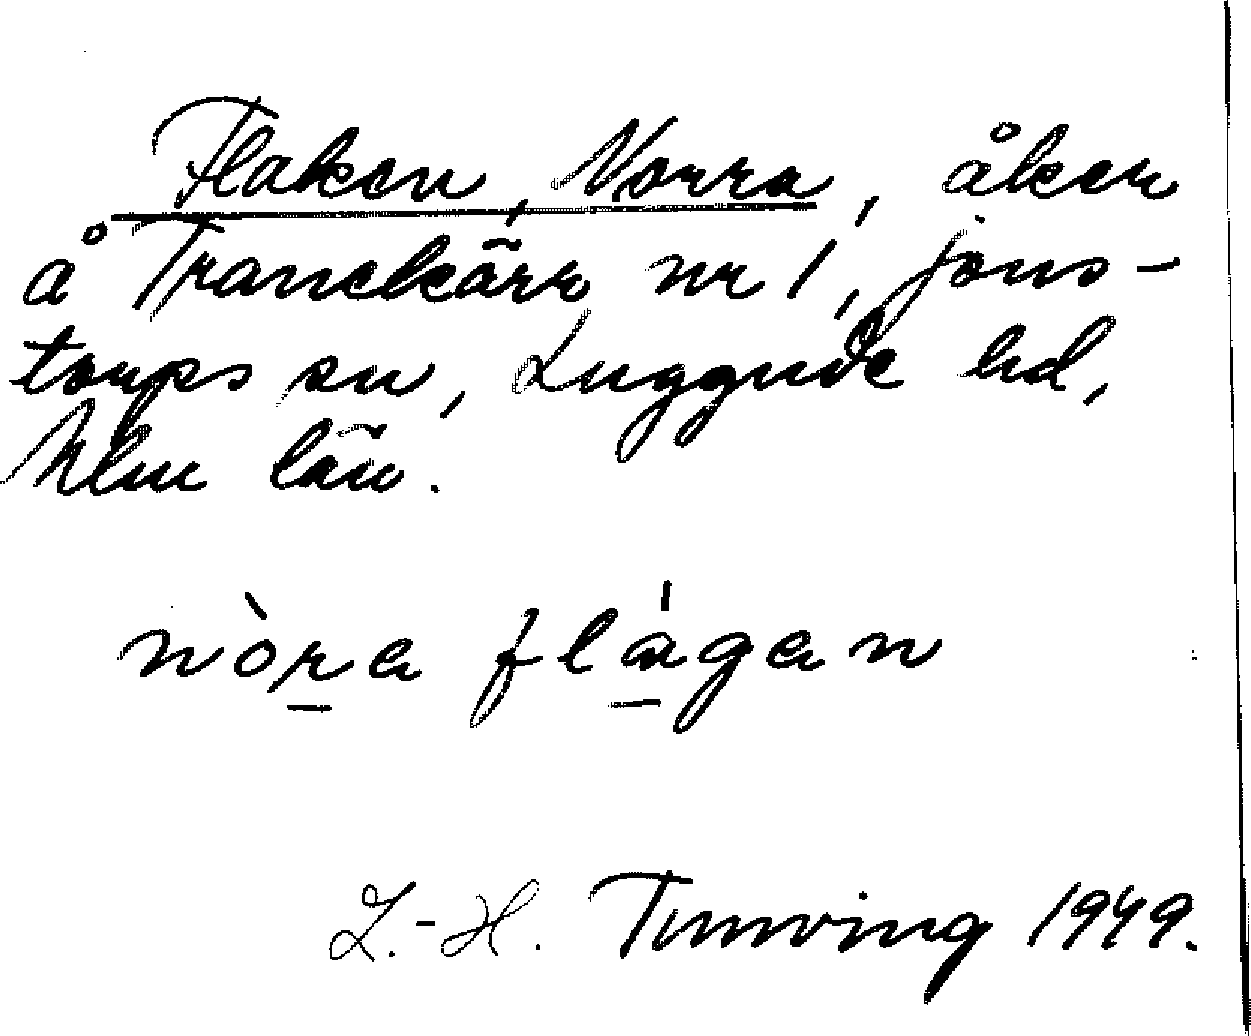 Flaken, Norra, åker
å Tranekärr nr 1, Jons-
torps sn, Luggude hd,
Mlm län.
nòra flágan
L.-H. Tunving 1949.